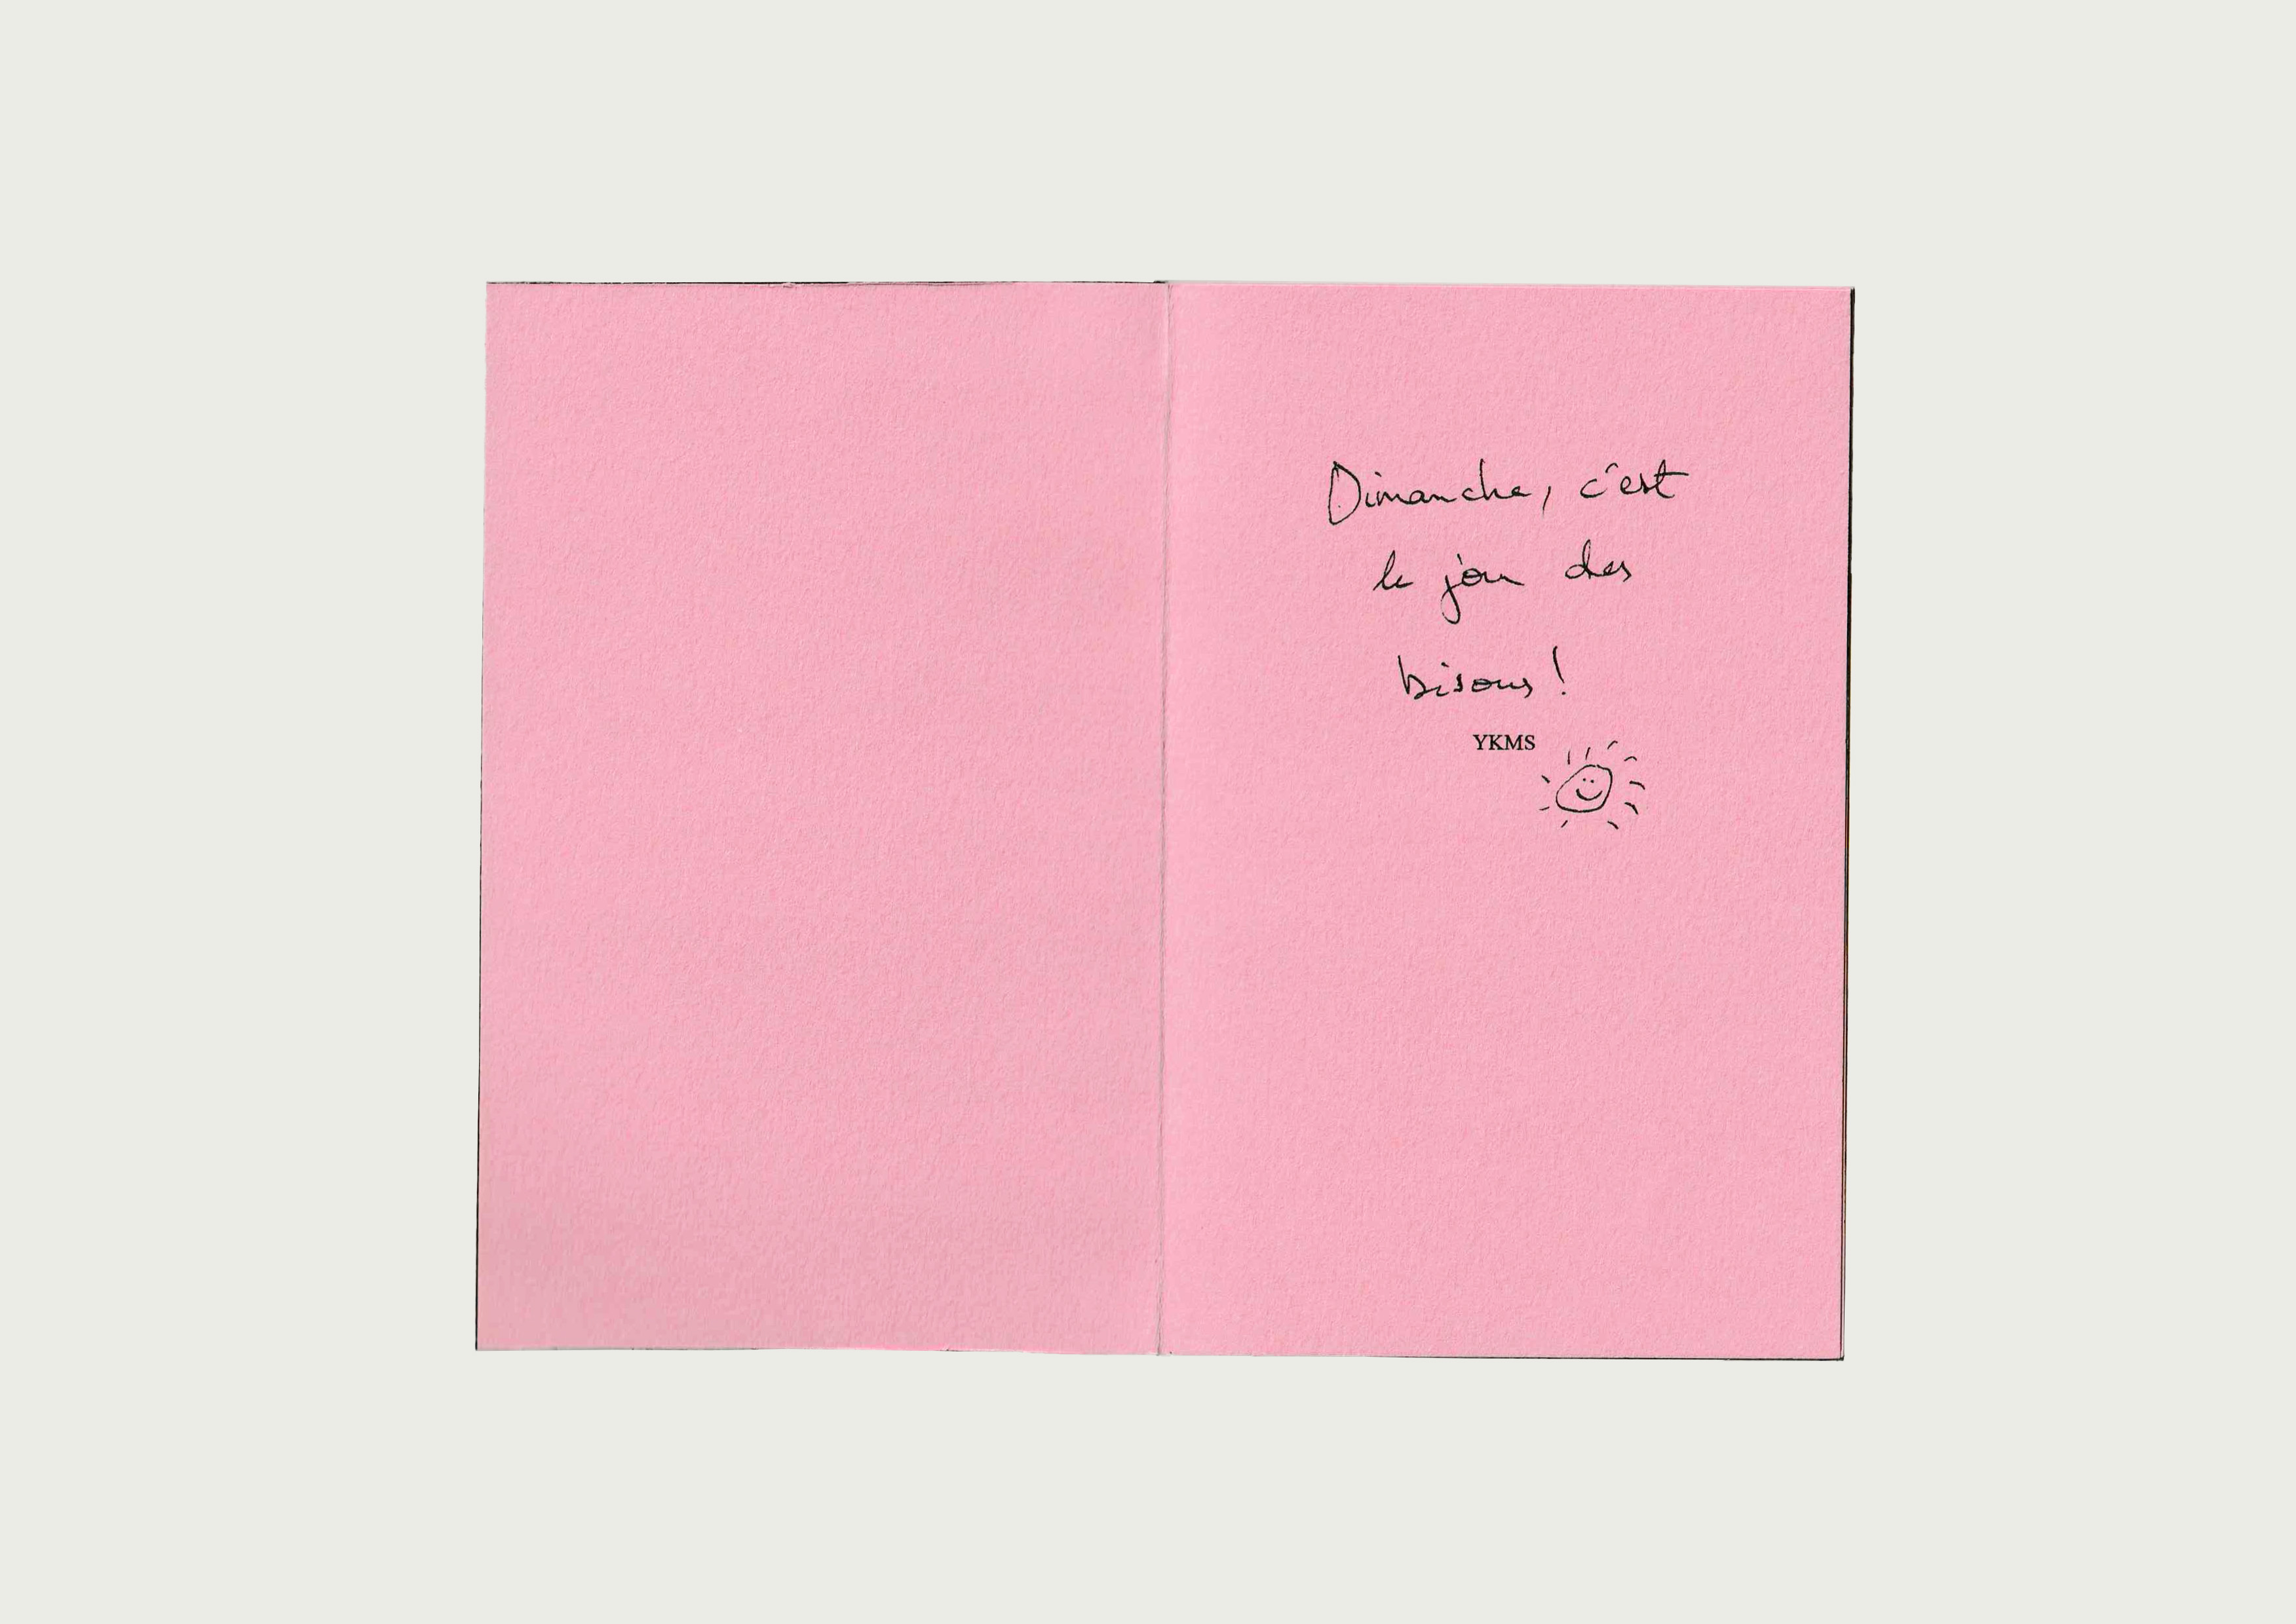 Dimanche, c'est
le jour des
bisous !
YKMS